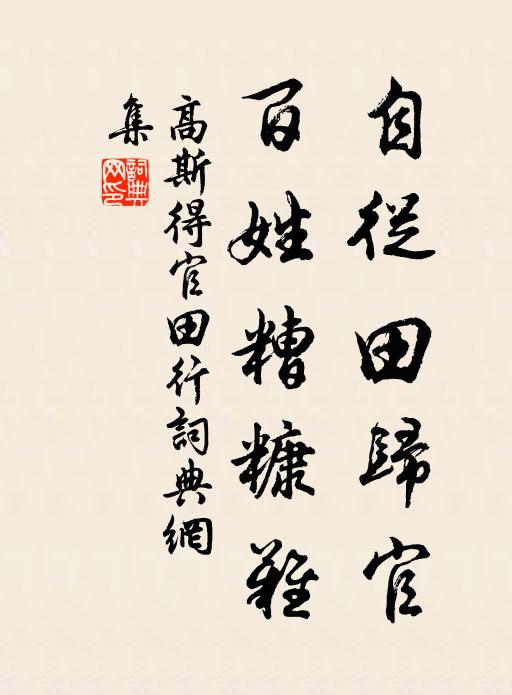 自從田歸官
百姓糟糠難
高斯得官田行詞典網
集
詞典網印